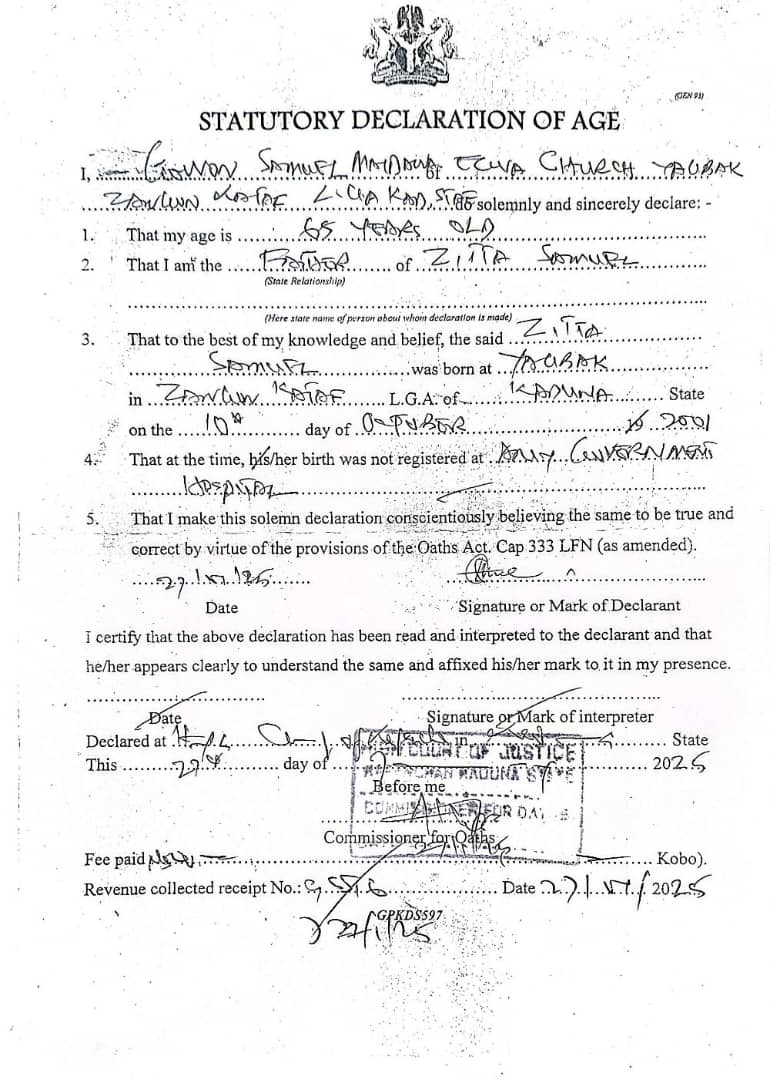 (GEN 93)
STATUTORY DECLARATION OF AGE
I, ... SAMUEL ... ECWA CHURCH ...
ZANGON KATAF L.G.A KAD, STATE do solemnly and sincerely declare: -
1. That my age is 65 YEARS OLD
2. That I am the FATHER of ZITTA SAMUEL
(State Relationship)
(Here state name of person about whom declaration is made)
3. That to the best of my knowledge and belief, the said ZITTA
SAMUEL was born at
in ZANGON KATAF L.G.A. of KADUNA State
on the 10th day of OCTOBER 2001
4. That at the time, his/her birth was not registered at ANY GOVERNMENT
HOSPITAL
5. That I make this solemn declaration conscientiously believing the same to be true and
correct by virtue of the provisions of the Oaths Act. Cap 333 LFN (as amended).
Date Signature or Mark of Declarant
I certify that the above declaration has been read and interpreted to the declarant and that
he/her appears clearly to understand the same and affixed his/her mark to it in my presence.
Date Signature or Mark of interpreter
Declared at State
HIGH COURT OF JUSTICE
This day of 2025
KADUNA STATE
Before me
COMMISSIONER FOR OATHS
Commissioner for Oaths
Fee paid Kobo).
Revenue collected receipt No.: Date 2025
GPKDS597